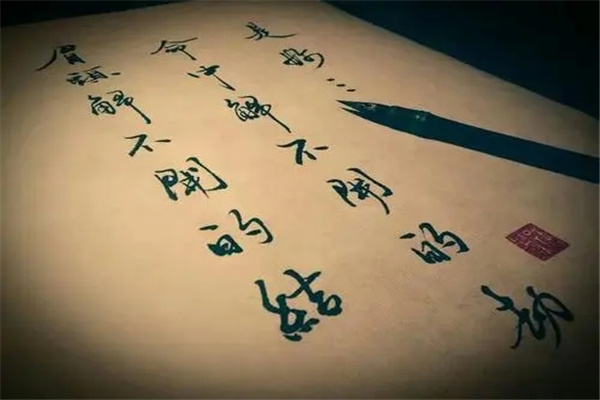 眉頭解不開的結
命中解不開的劫
是...